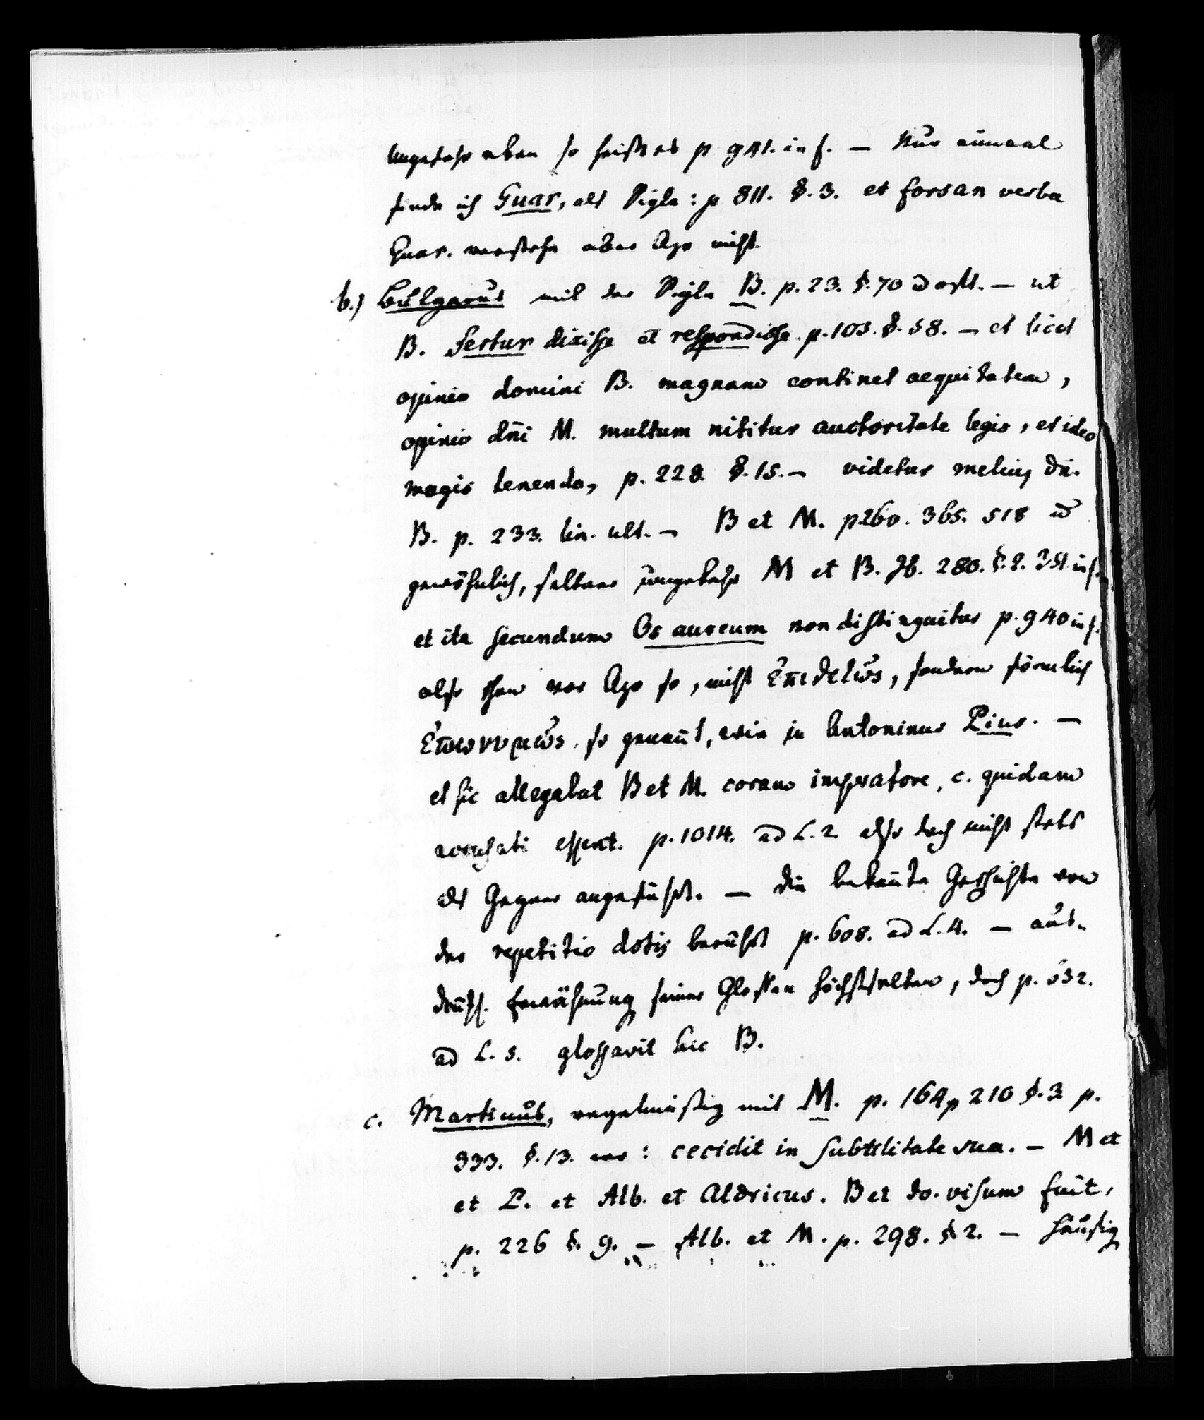 Ungefehr eben so heißt es p 941. in f. — Nur einmal
finde ich Guar, als Sigla: p 811. §. 3. et forsan verba
Guar. verstehe aber Azo nicht
b.) Bulgarus mit der Sigla B. p. 23. §. 70 — ut
B. fertur dixisse et respondisse p. 103. §. 58. — et licet
opinio domini B. magnam continet aequitatem,
opinio dñi M. multum nititur auctoritate legis, et ideo
magis tenenda, p. 228 §. 15. — videtur melius dñ.
B. p. 233. lin. ult. — B et M. p 260. 365. 518
gewöhnlich, seltner umgekehrt M et B. 280. §. 2. 351. in f.
et ita secundum Os aureum non distinguitur p. 940 in f.
also schon vor Azo so, nicht , sondern förmlich
so genañt, wie ja Antoninus Pius. —
et sic allegabat B et M. coram imperatore, c. quidam
essent. p. 1014. ad L. 2. also doch nicht stets
als Gegner angeführt. — Die bekañte Geschichte von
der repetitio dotis berührt p. 608. ad L. 4. — aus-
drükl. Erwähnung seiner Glossen höchstselten, doch p. 532.
ad L. 5. glossavit hic B.
c. Martinus, regelmäßig mit M. p. 164, p 210 §. 3. p.
333. §. 13. : cecidit in subtilitate sua. — M et
et P. et Alb. et Aldricus. B et Jo. visum fuit,
p. 226 §. 9. — Alb. et M. p. 298. §. 2. — häufig